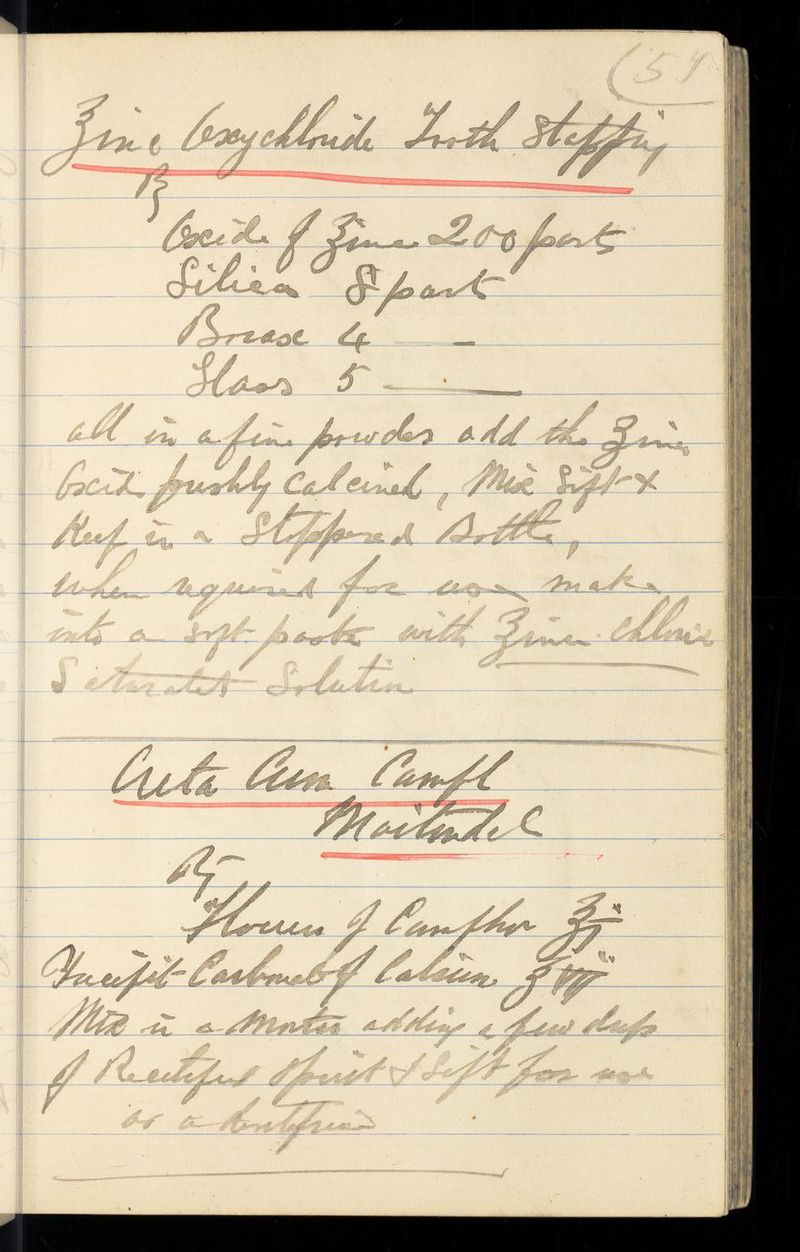 (59
Zinc Oxychloride Tooth Stopping
℞
Oxide of Zinc 200 parts
Silica 8 part
Borax 4 —
Glass 5 —
all in a fine powder add the Zinc
Oxide freshly calcined, Mix Sift &
Keep in a Stoppered Bottle,
when required for use make
into a soft paste with Zinc Chloride
Saturated Solution
Creta Cum Camph
Martindel
℞
Flowers of Camphor ℥j
Precipit Carbonate of Calcium
Mix in a Mortar adding a few drops
of Rectified Spirit & Sift for use
as a dentifrice